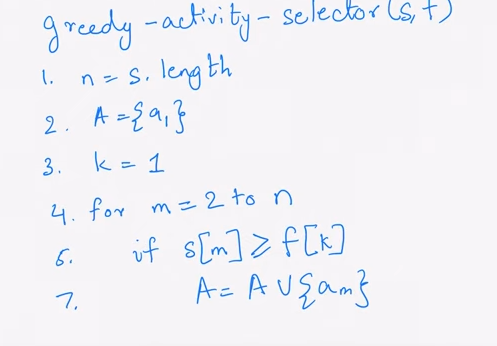 greedy-activity-selector(s,f)
1. n = s.length
2. A = {a₁}
3. k = 1
4. for m = 2 to n
6. if s[m] ≥ f[k]
7. A = A ∪ {aₘ}